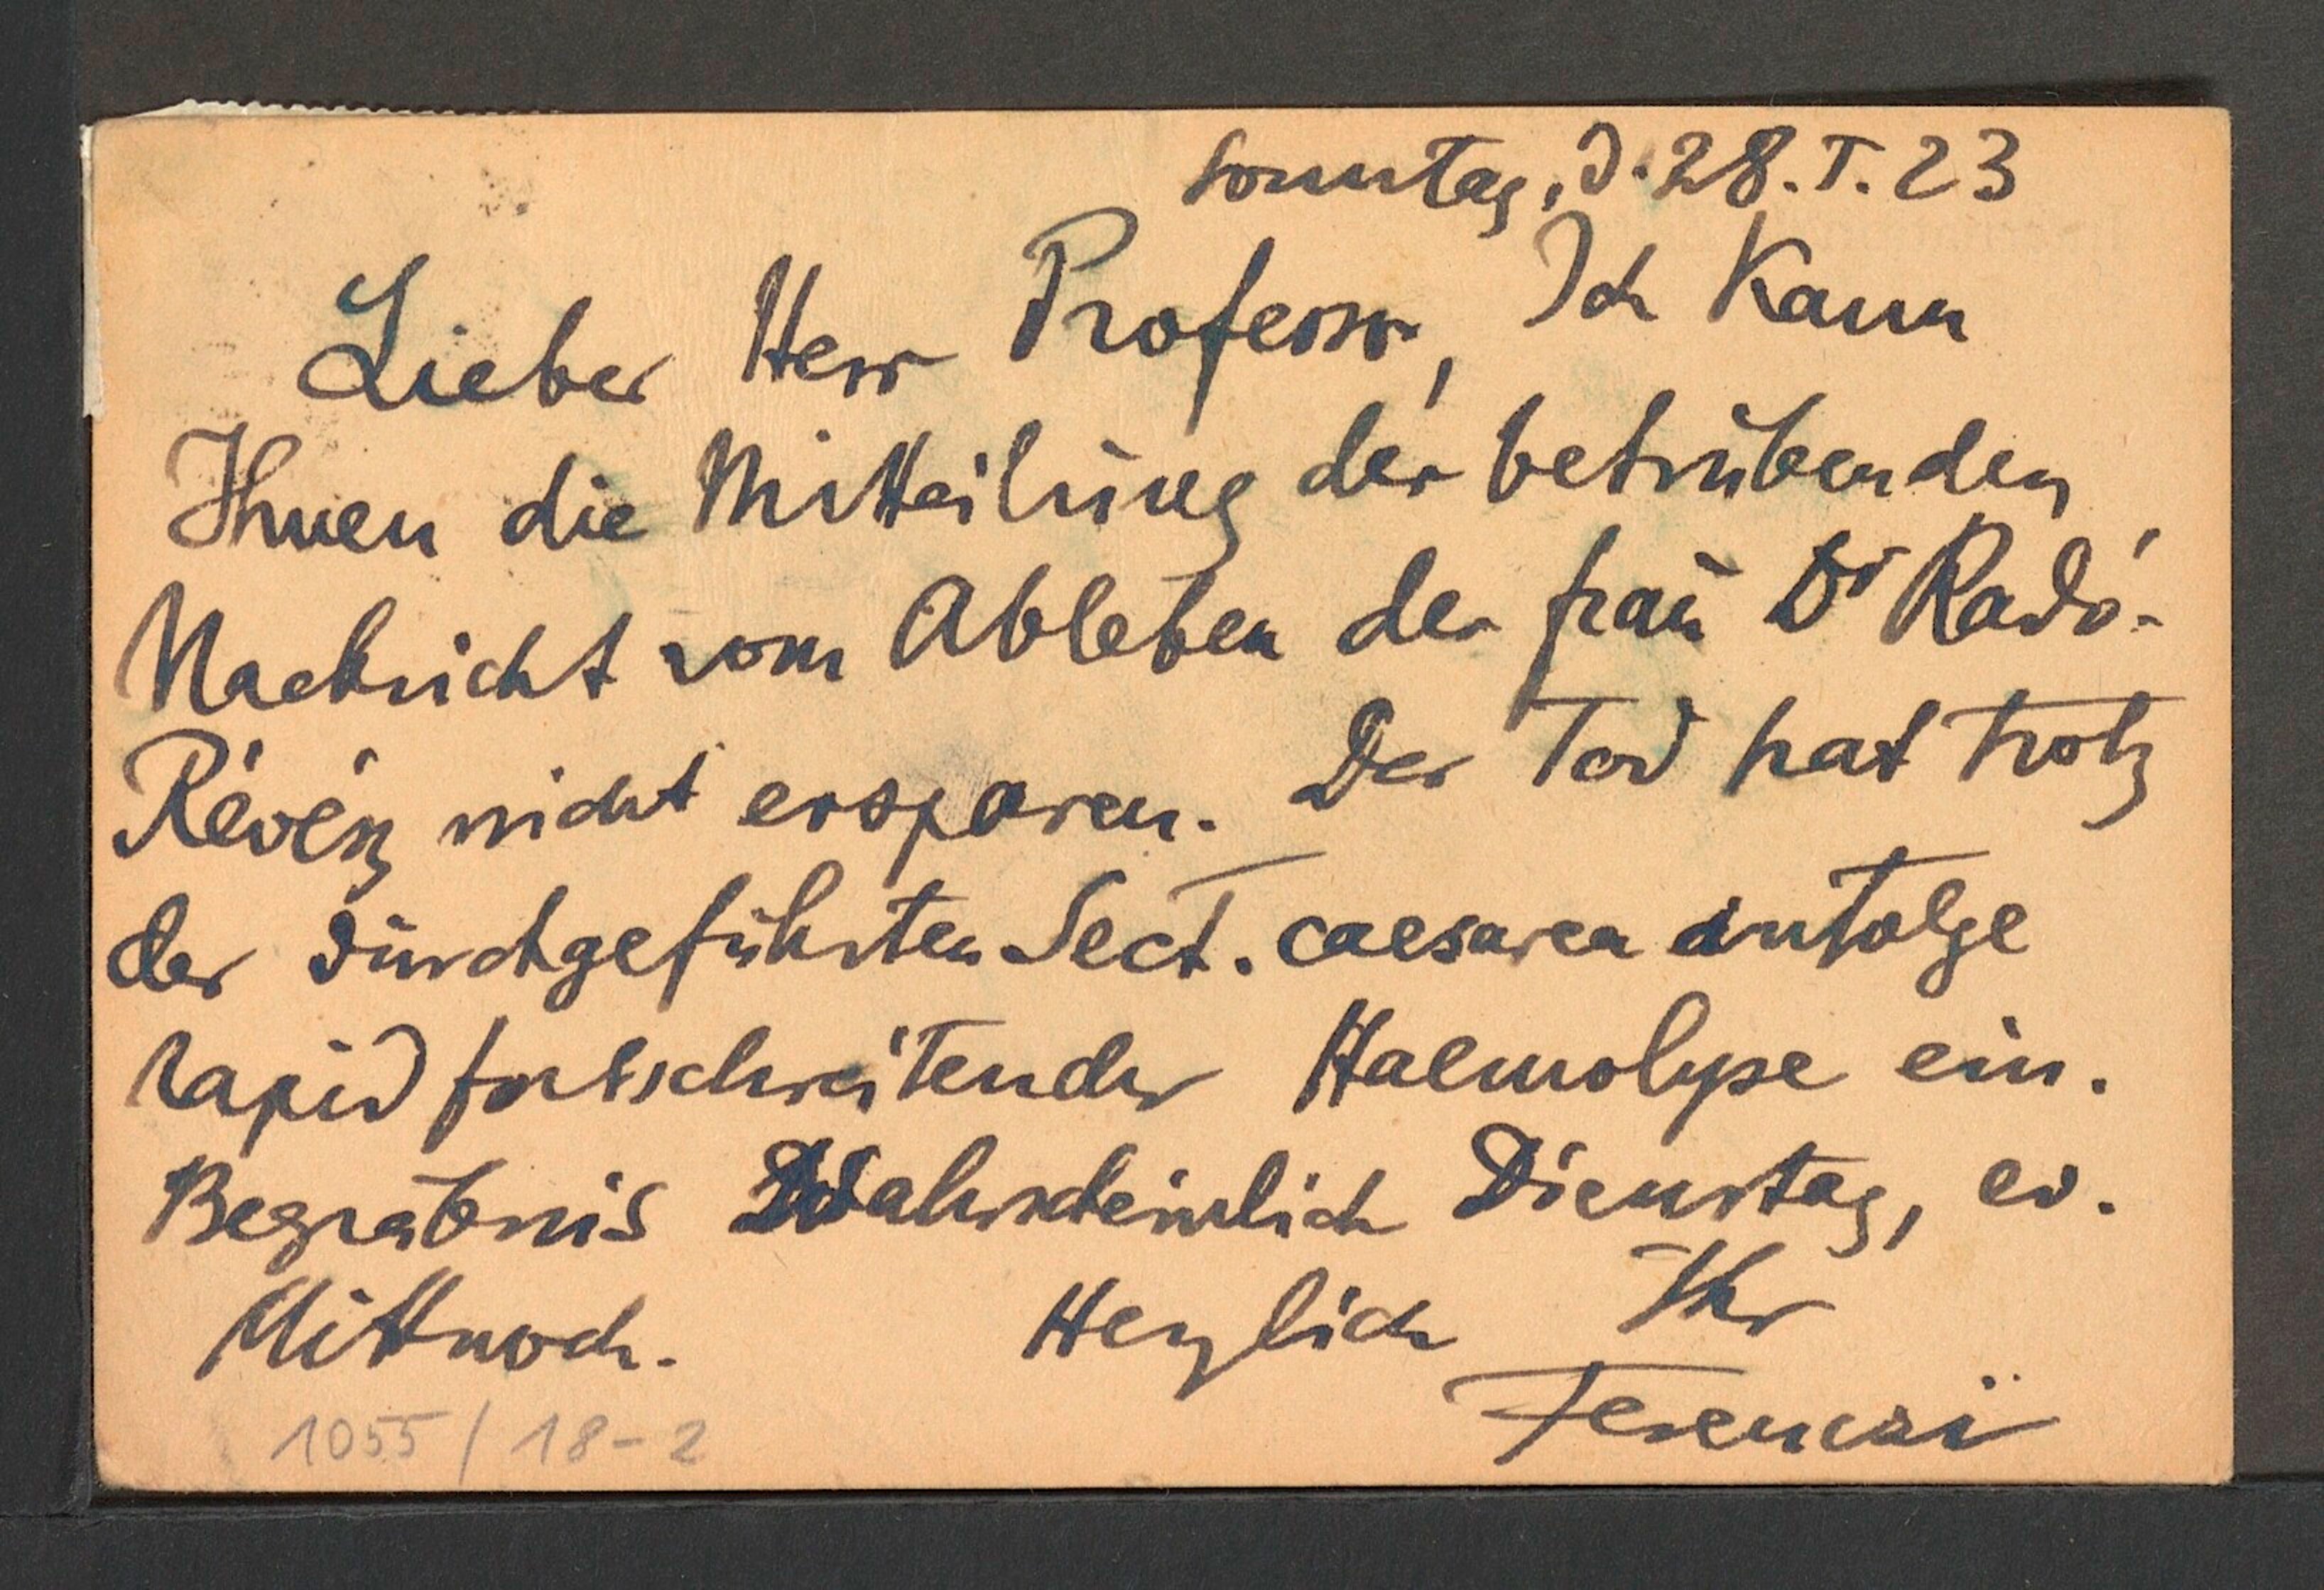 Sonntag, d. 28. I. 23
Lieber Herr Professor, Ich kann
Ihnen die Mitteilung der betrübenden
Nachricht vom Ableben der Frau Dr Radó-
Révész nicht ersparen. Der Tod hat trotz
der durchgeführten Sect. caesarea infolge
rapid fortschreitender Haemolyse ein.
Begräbnis Wahrscheinlich Dienstag, ev.
Mittwoch. Herzlich Ihr
Ferenczi
1055 / 18-2